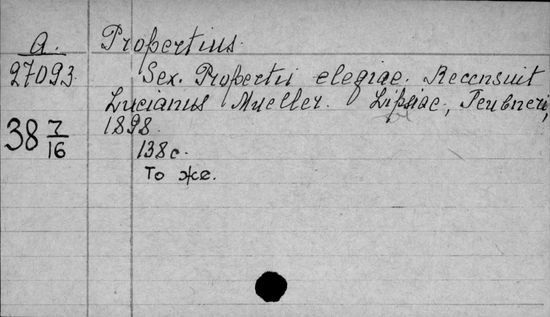 A. Propertius.
27093. Sex. Propertii elegiae. Recensuit
Lucianus Mueller. Lipsiae, Teubneri,
38 7/16 1898.
138 с.
То же.